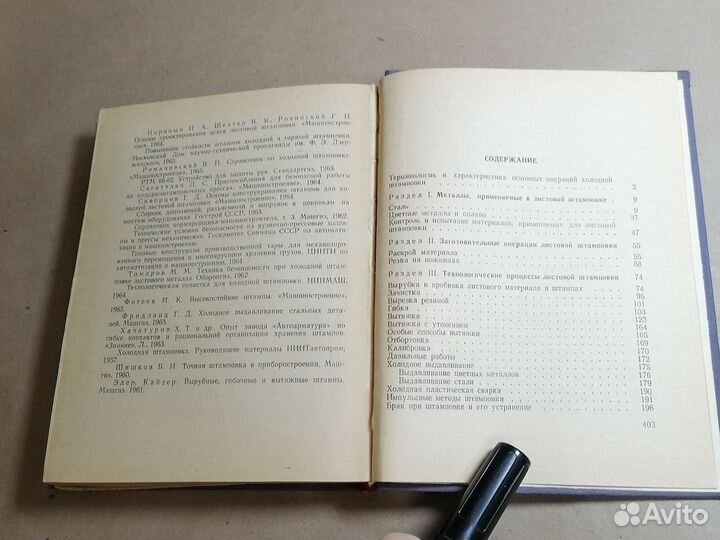 Норицын И. А., Шехтер В. Я., Ровинский Г. Н.
Основы проектирования цехов листовой штамповки. «Машиностроение», 1964.
Повышение стойкости штампов холодной и горячей штамповки.
Московский Дом научно-технической пропаганды им. Ф. Э. Дзержинского, 1965.
Романовский В. П. Справочник по холодной штамповке.
«Машиностроение», 1965.
РТМ 66-62. Устройство для защиты рук. Стандартгиз, 1963.
Сигатлин Л. С. Приспособления для безопасной работы
на холодноштамповочных прессах. «Машиностроение», 1964.
Скворцов Г. Д. Основы конструирования штампов для холодной листовой штамповки. «Машиностроение», 1964.
Сборник дополнений, разъяснений и поправок к ценникам на
монтаж оборудования. Госстрой СССР, 1963.
Справочник нормировщика машиностроителя, т. 3. Машгиз, 1962.
Технические условия безопасности на кузнечно-прессовые машины
и прессы механические. Госкомитет Совмина СССР по автоматизации и машиностроению.
Типовые конструкции производственной тары для механизированного перемещения и многоярусного хранения грузов. ЦИНТИ по
автоматизации и машиностроению, 1964.
Томаров М. М. Техника безопасности при холодной штамповке листового металла. Оборонгиз, 1962.
Технологическая оснастка для холодной штамповки. НИИМАШ,
1964.
Фотеев Н. К. Высокостойкие штампы. «Машиностроение»,
1965.
Фридлянд Г. Д. Холодное выдавливание стальных деталей. Машгиз, 1963.
Хачатуров Х. Т. и др. Опыт завода «Автоарматура» по
гибке контактов и рациональной организации хранения штампов.
«Знание», Л., 1963.
Холодная штамповка. Руководящие материалы НИИТавтопром,
1957.
Шишков Б. И. Точная штамповка в приборостроении. Машгиз, 1960.
Элер, Кайзер. Вырубные, гибочные и вытяжные штампы.
Машгиз, 1961.
СОДЕРЖАНИЕ
Терминология и характеристика основных операций холодной
штамповки 3
Раздел I. Металлы, применяемые в листовой штамповке 9
Сталь 9
Цветные металлы и сплавы 37
Контроль и испытание материалов, применяемых для листовой
штамповки 47
Раздел II. Заготовительные операции листовой штамповки 55
Раскрой материала 55
Резка на ножницах 68
Раздел III. Технологические процессы листовой штамповки 74
Вырубка и пробивка листового материала в штампах 74
Зачистка 95
Вырезка резиной 101
Гибка 103
Вытяжка 123
Вытяжка с утонением 164
Особые способы вытяжки 165
Отбортовка 169
Калибровка 170
Давильные работы 172
Холодное выдавливание 175
Выдавливание цветных металлов 176
Выдавливание стали 179
Холодная пластическая сварка 190
Импульсные методы штамповки 191
Брак при штамповке и его устранение 196
403
Avito